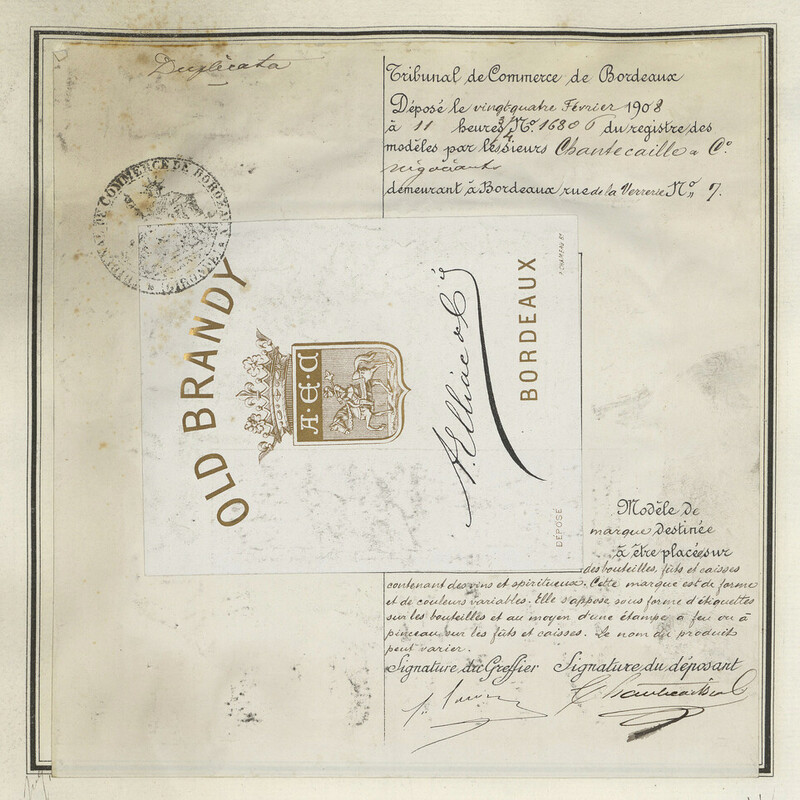 Duplicata
Tribunal de Commerce de Bordeaux
Déposé le vingt-quatre Février 1908
à 11 heures 3/4 No. 16806 du registre des
modèles par les sieurs Chantecaille & Co.
négociants
demeurant à Bordeaux rue de la Verrerie No. 7.
TRIBUNAL DE COMMERCE DE BORDEAUX
(GIRONDE)
OLD BRANDY
A·E·C
BORDEAUX
DÉPOSÉ
Modèle de
marque destinée
à être placée sur
des bouteilles, fûts et caisses
contenant des vins et spiritueux. Cette marque est de forme
et de couleurs variables. Elle s'appose sous forme d'étiquettes
sur les bouteilles et au moyen d'une étampe à feu ou à
pinceau sur les fûts et caisses. Le nom du produit
peut varier.
Signature du Greffier Signature du déposant